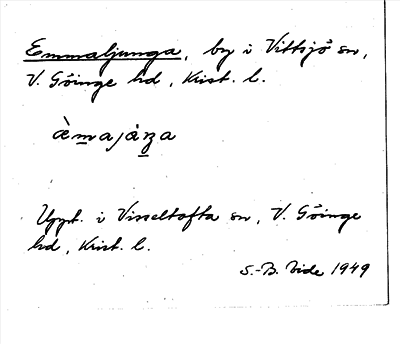 Emmaljunga, by i Vittsjö sn,
V. Göinge hd, Krist. l.
àmajáŋa
Uppt. i Visseltofta sn, V. Göinge
hd, Krist. l.
S.-B. Vide 1949